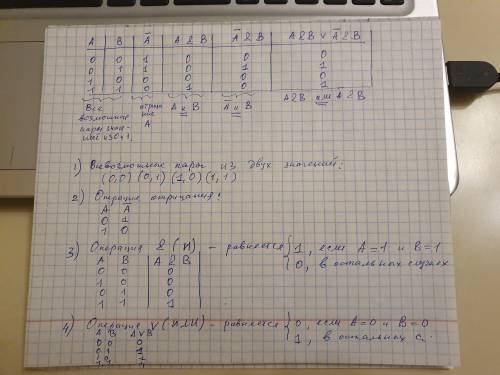 A | B | Ā | A & B | Ā & B | A & B ∨ Ā & B
0 0 1 0 0 0
0 1 1 0 1 1
1 0 0 0 0 0
1 1 0 1 0 1
Все возможные пары
отрицание A
A и B
Ā и B
A & B или Ā & B
1) Всевозможные пары из двух значений:
(0,0) (0,1) (1,0) (1,1)
2) Операция отрицания:
A Ā
0 1
1 0
3) Операция & (И) – равняется { 1, если A=1 и B=1
0, в остальных случаях
A B A & B
0 0 0
1 0 0
0 1 0
1 1 1
4) Операция ∨ (ИЛИ) – равняется { 0, если A=0 и B=0
1, в остальных с.
A B A∨B
0 0 0